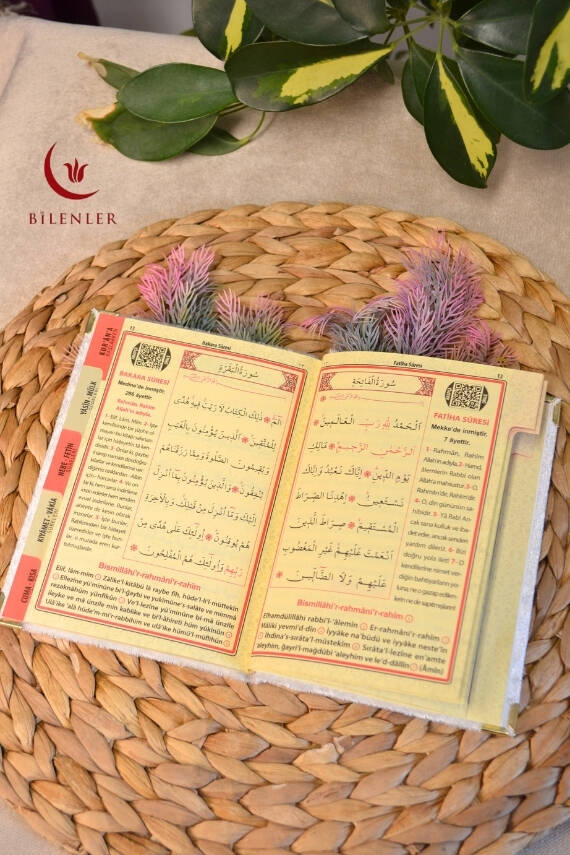 BİLENLER
12
Fatiha Sûresi
سُورَةُ الْفَاتِحَةِ
اَلْحَمْدُ لِلّٰهِ رَبِّ الْعَالَمِينَ
اَلرَّحْمٰنِ الرَّحِيمِ مَالِكِ
يَوْمِ الدِّينِ اِيَّاكَ نَعْبُدُ وَاِيَّاكَ
نَسْتَعِينُ اِهْدِنَا الصِّرَاطَ
الْمُسْتَقِيمَ صِرَاطَ الَّذِينَ
اَنْعَمْتَ عَلَيْهِمْ غَيْرِ الْمَغْضُوبِ
عَلَيْهِمْ وَلَا الضَّالِّينَ
FATİHA SÛRESİ
Mekke'de inmiştir.
7 âyettir.
1- Rahmân, Rahîm
Allah'ın adıyla. 2- Hamd,
âlemlerin Rabbi olan
Allah'a mahsustur. 3- O
Rahmân'dır, Rahîm'dir.
4- O, din gününün sa-
hibidir. 5- Yâ Rabi! An-
cak sana kulluk ve iba-
det eder, ancak senden
yardım dileriz. 6- Bizi
doğru yola ilet! 7- O
kendilerine nimet ver-
diğin bahtiyarların yo-
luna; ne o gazap edilen-
lerin ne de sapıtmışların!
Bismillâhi'r-rahmâni'r-rahîm
Elhamdülillâhi rabbi'l-'âlemîn Er-rahmâni'r-rahîm
Mâliki yevmi'd-dîn İyyâke na'büdü ve iyyâke neste'în
İhdina's-sırâta'l-müstekîm Sırâta'l-lezîne en'amte
aleyhim, ğayri'l-mağdûbi 'aleyhim ve le'd-dâllîn (Âmîn)
13
Bakara Sûresi
سُورَةُ الْبَقَرَةِ
الٓمٓ ذٰلِكَ الْكِتَابُ لَا رَيْبَ فِيهِ هُدًى
لِلْمُتَّقِينَ اَلَّذِينَ يُؤْمِنُونَ بِالْغَيْبِ
وَيُقِيمُونَ الصَّلٰوةَ وَمِمَّا رَزَقْنَاهُمْ
يُنْفِقُونَ وَالَّذِينَ يُؤْمِنُونَ بِمَا اُنْزِلَ
اِلَيْكَ وَمَا اُنْزِلَ مِنْ قَبْلِكَ وَبِالْاٰخِرَةِ
هُمْ يُوقِنُونَ اُولٰئِكَ عَلٰى هُدًى مِنْ
رَبِّهِمْ وَاُولٰئِكَ هُمُ الْمُفْلِحُونَ
BAKARA SÛRESİ
Medine'de inmiştir.
286 âyettir.
Rahmân, Rahîm
Allah'ın adıyla.
Bismillâhi'r-rahmâni'r-rahîm
Elif, lâm-mîm Zâlike'l-kitâbü lâ raybe fîh, hüde'l-li'l-müttekîn
Ellezîne yü'minûne bi'l-ğaybi ve yukîmûne's-salâte ve mimmâ
razaknâhüm yünfikûn Ve'l-lezîne yü'minûne bi-mâ ünzile
ileyke ve mâ ünzile min kablike ve bi'l-âhireti hüm yûkinûn
Ulâ'ike 'alâ hüde'm-mi'r-rabbihim ve ulâ'ike hümü'l-müflihûn
KUR'AN'A
YASİN - MÜLK
NEBE - FETİH
KIYAMET - VAKIA
CUMA - KISA